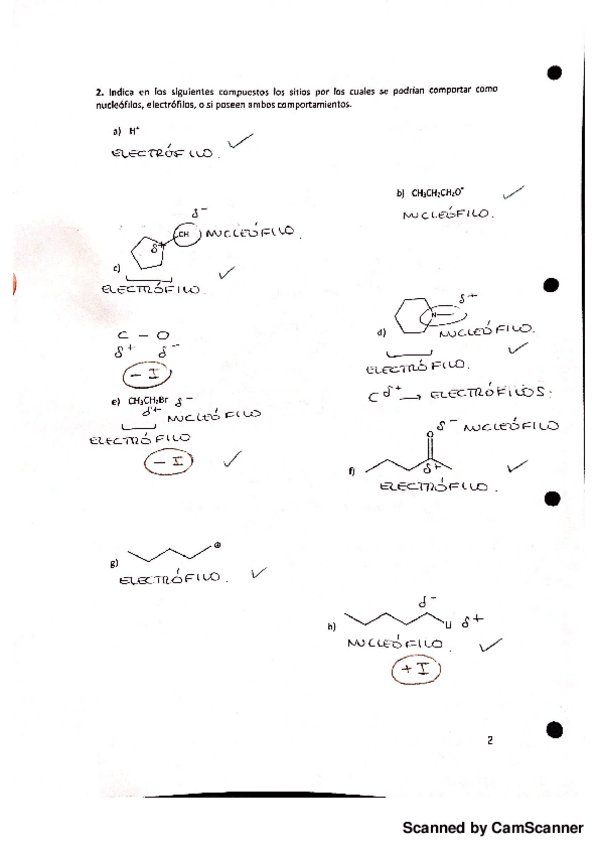 2. Indica en los siguientes compuestos los sitios por los cuales se podrían comportar como
nucleófilos, electrófilos, o si poseen ambos comportamientos.
a) H⁺
ELECTRÓFILO.
b) CH₃CH₂CH₂O⁻
NUCLEÓFILO.
δ⁻
OH NUCLEÓFILO.
δ⁺
c)
ELECTRÓFILO.
δ⁺
N
d) NUCLEÓFILO.
ELECTRÓFILO.
C δ⁺ → ELECTRÓFILOS:
C – O
δ⁺ δ⁻
– I
e) CH₃CH₂Br δ⁻
δ⁺ NUCLEÓFILO
ELECTRÓFILO
– I
δ⁻ NUCLEÓFILO
O
f) δ⁺
ELECTRÓFILO.
⊕
g)
ELECTRÓFILO.
δ⁻
h) Li δ⁺
NUCLEÓFILO.
+ I
2
Scanned by CamScanner